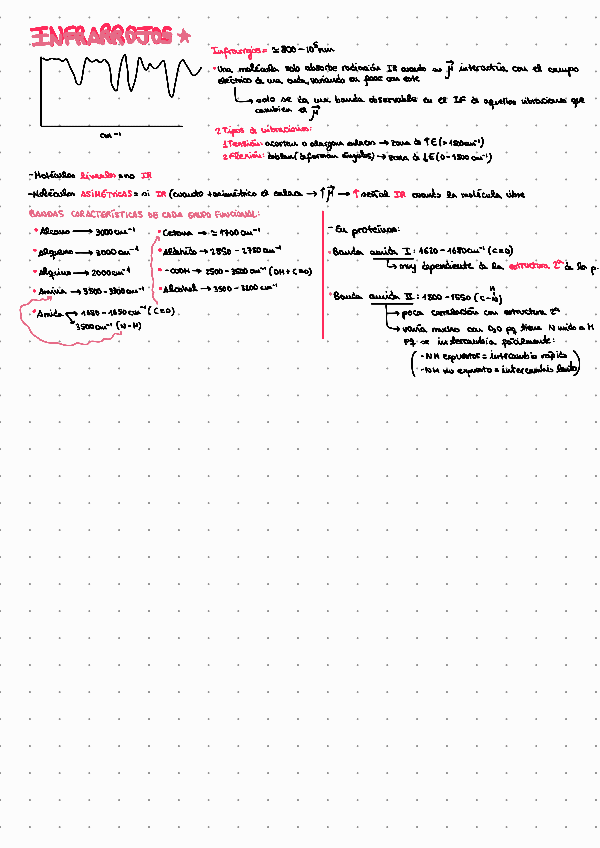 INFRARROJOS
Infrarrojos = ≃ 800 - 10⁶ nm
· Una molécula solo absorbe radiación IR cuando su μ⃗ interactúa con el campo
eléctrico de una onda, variando su fase con este
→ solo se da una banda observable en el IF de aquellas vibraciones que
cambien el μ⃗
cm⁻¹
2 Tipos de vibraciones:
1 Tensión: acortan o alargan enlaces → zona de ↑E (> 1500 cm⁻¹)
2 Flexión: doblan (deforman ángulos) → zona de ↓E (0 - 1500 cm⁻¹)
- Moléculas lineales = no IR
- Moléculas ASIMÉTRICAS = si IR (cuanto + asimétrico el enlace → ↑ μ⃗ → ↑ señal IR cuando la molécula vibre
BANDAS CARACTERÍSTICAS DE CADA GRUPO FUNCIONAL:
· Alcano → 3000 cm⁻¹
· Alqueno → 3000 cm⁻¹
· Alquino → 2000 cm⁻¹
· Amina → 3500 - 3300 cm⁻¹
· Amida → 1680 - 1650 cm⁻¹ (C=O)
3500 cm⁻¹ (N-H)
· Cetona → ≃ 1700 cm⁻¹
· Aldehído → 2850 - 2750 cm⁻¹
· -COOH → 2500 - 3500 cm⁻¹ (OH + C=O)
· Alcohol → 3500 - 3200 cm⁻¹
- En proteínas:
· Banda amida I : 1620 - 1680 cm⁻¹ (C=O)
→ muy dependiente de la estructura 2ª de la p.
· Banda amida II : 1500 - 1550 (C-N)
H
→ poca correlación con estructura 2ª
→ varía mucho con D₂O pq tiene N unido a H
pq se intercambia fácilmente:
- NH expuestos = intercambio rápido
- NH no expuesto = intercambio lento